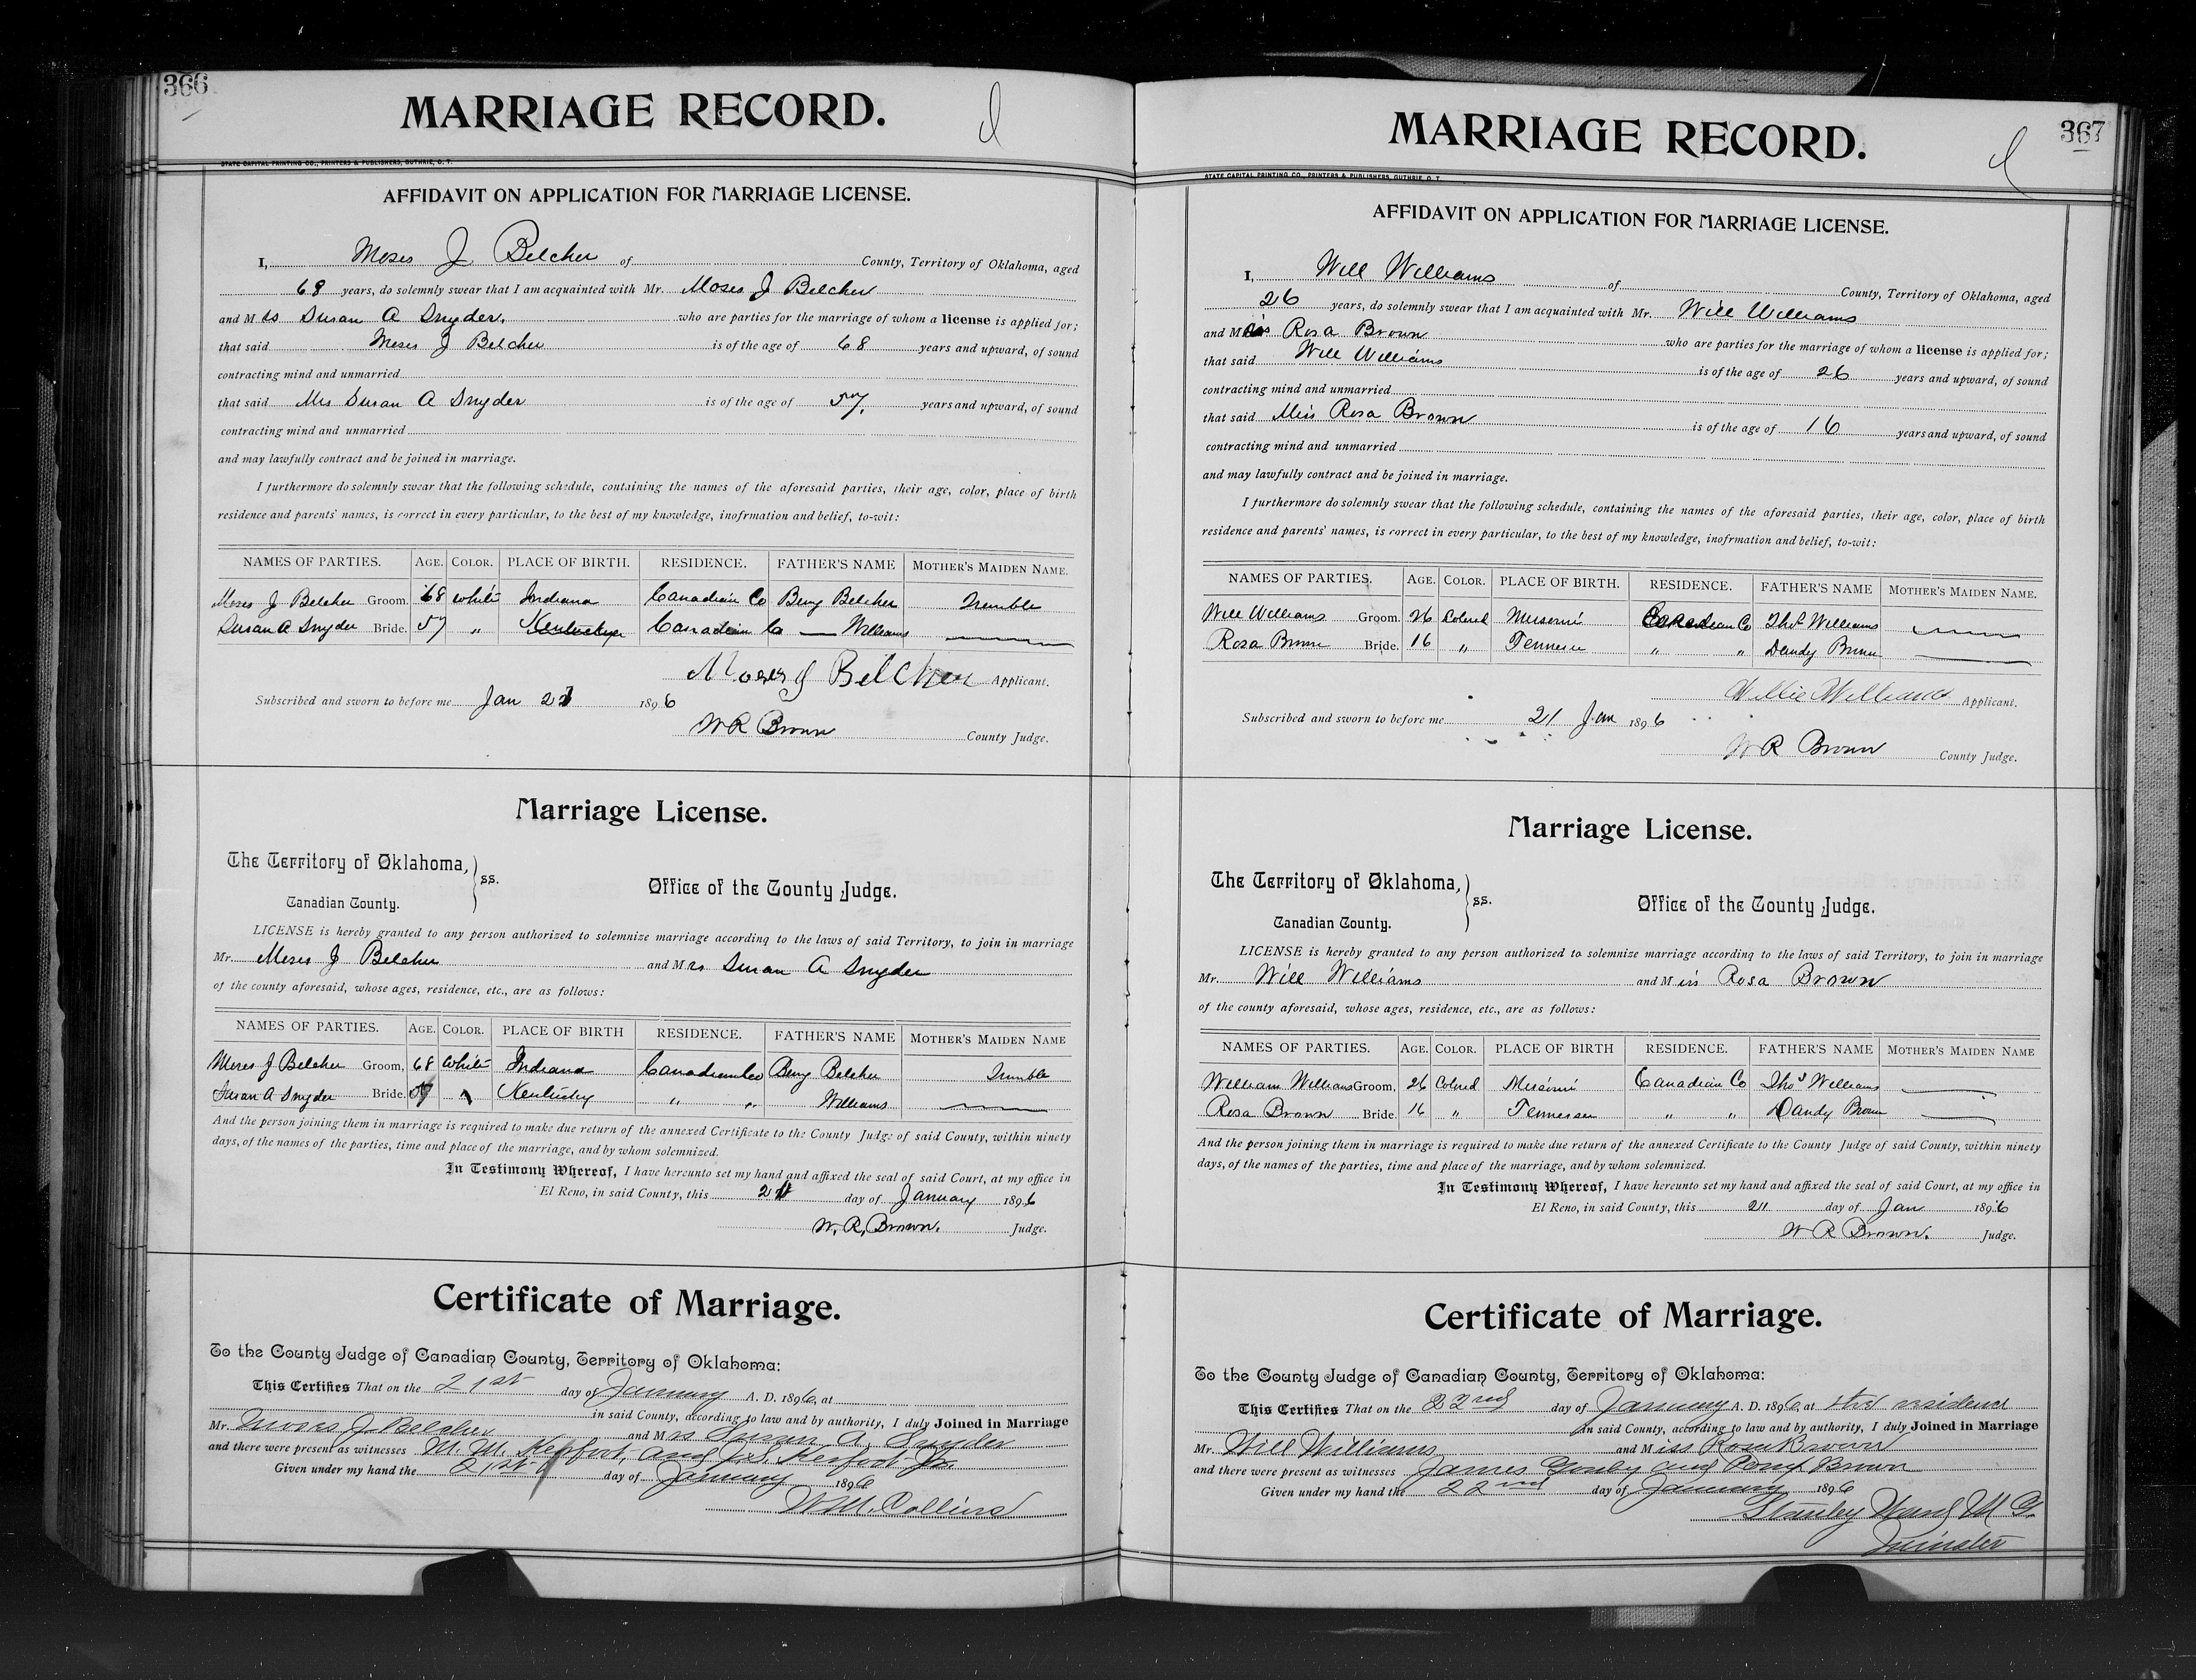 366
MARRIAGE RECORD.
STATE CAPITAL PRINTING CO., PRINTERS & PUBLISHERS, GUTHRIE, O. T.
AFFIDAVIT ON APPLICATION FOR MARRIAGE LICENSE.
I, Moses J Belcher of County, Territory of Oklahoma, aged
68 years, do solemnly swear that I am acquainted with Mr. Moses J Belcher
and Mrs Susan A Snyder, who are parties for the marriage of whom a license is applied for;
that said Moses J Belcher is of the age of 68 years and upward, of sound
contracting mind and unmarried
that said Mrs Susan A Snyder is of the age of 57, years and upward, of sound
contracting mind and unmarried
and may lawfully contract and be joined in marriage.
I furthermore do solemnly swear that the following schedule, containing the names of the aforesaid parties, their age, color, place of birth
residence and parents' names, is correct in every particular, to the best of my knowledge, inofrmation and belief, to-wit:
NAMES OF PARTIES. AGE. COLOR. PLACE OF BIRTH. RESIDENCE. FATHER'S NAME MOTHER'S MAIDEN NAME.
Moses J Belcher Groom. 68 White Indiana Canadian Co Benj Belcher Trimble
Susan A Snyder Bride. 57 " Kentucky Canadian Co — Williams
Moses J Belcher Applicant.
Subscribed and sworn to before me Jan 21 1896
W R Brown County Judge.
Marriage License.
The Territory of Oklahoma, } ss.
Canadian County.
Office of the County Judge.
LICENSE is hereby granted to any person authorized to solemnize marriage according to the laws of said Territory, to join in marriage
Mr. Moses J Belcher and Mrs Susan A Snyder
of the county aforesaid, whose ages, residence, etc., are as follows:
NAMES OF PARTIES. AGE. COLOR. PLACE OF BIRTH RESIDENCE. FATHER'S NAME MOTHER'S MAIDEN NAME
Moses J Belcher Groom, 68 White Indiana Canadian Co Benj Belcher Trimble
Susan A Snyder Bride. 57 " Kentucky " " Williams
And the person joining them in marriage is required to make due return of the annexed Certificate to the County Judge of said County, within ninety
days, of the names of the parties, time and place of the marriage, and by whom solemnized.
In Testimony Whereof, I have hereunto set my hand and affixed the seal of said Court, at my office in
El Reno, in said County, this 21 day of January 1896
W. R. Brown. Judge.
Certificate of Marriage.
To the County Judge of Canadian County, Territory of Oklahoma:
This Certifies That on the 21st day of January A. D. 1896, at
in said County, according to law and by authority, I duly Joined in Marriage
Mr. Moses J. Belcher and Mrs Susan A. Snyder
and there were present as witnesses M. M. Kerfoot, and J. S. Kerfoot Jr.
Given under my hand the 21st day of January 1896
W. M. Collins
367
MARRIAGE RECORD.
STATE CAPITAL PRINTING CO., PRINTERS & PUBLISHERS, GUTHRIE, O. T.
AFFIDAVIT ON APPLICATION FOR MARRIAGE LICENSE.
I, Will Williams of County, Territory of Oklahoma, aged
26 years, do solemnly swear that I am acquainted with Mr. Will Williams
and Miss Rosa Brown who are parties for the marriage of whom a license is applied for;
that said Will Williams is of the age of 26 years and upward, of sound
contracting mind and unmarried
that said Miss Rosa Brown is of the age of 16 years and upward, of sound
contracting mind and unmarried
and may lawfully contract and be joined in marriage.
I furthermore do solemnly swear that the following schedule, containing the names of the aforesaid parties, their age, color, place of birth
residence and parents' names, is correct in every particular, to the best of my knowledge, inofrmation and belief, to-wit:
NAMES OF PARTIES. AGE. COLOR. PLACE OF BIRTH. RESIDENCE. FATHER'S NAME MOTHER'S MAIDEN NAME.
Will Williams Groom. 26 Colored Missouri Canadian Co Thos Williams
Rosa Brown Bride. 16 " Tennessee " " Dandy Brown
Willie Williams Applicant.
Subscribed and sworn to before me 21 Jan 1896
W R Brown County Judge.
Marriage License.
The Territory of Oklahoma, } ss.
Canadian County.
Office of the County Judge.
LICENSE is hereby granted to any person authorized to solemnize marriage according to the laws of said Territory, to join in marriage
Mr. Will Williams and Miss Rosa Brown
of the county aforesaid, whose ages, residence, etc., are as follows:
NAMES OF PARTIES. AGE. COLOR. PLACE OF BIRTH RESIDENCE. FATHER'S NAME MOTHER'S MAIDEN NAME
William Williams Groom, 26 Colored Missouri Canadian Co Thos Williams
Rosa Brown Bride. 16 " Tennessee " " Dandy Brown
And the person joining them in marriage is required to make due return of the annexed Certificate to the County Judge of said County, within ninety
days, of the names of the parties, time and place of the marriage, and by whom solemnized.
In Testimony Whereof, I have hereunto set my hand and affixed the seal of said Court, at my office in
El Reno, in said County, this 21 day of Jan 1896
W R Brown. Judge.
Certificate of Marriage.
To the County Judge of Canadian County, Territory of Oklahoma:
This Certifies That on the 22nd day of January A. D. 1896, at residence
in said County, according to law and by authority, I duly Joined in Marriage
Mr. Will Williams and Miss Rosa Brown
and there were present as witnesses James and Brown
Given under my hand the 22nd day of January 1896
Stanley Ward M G.